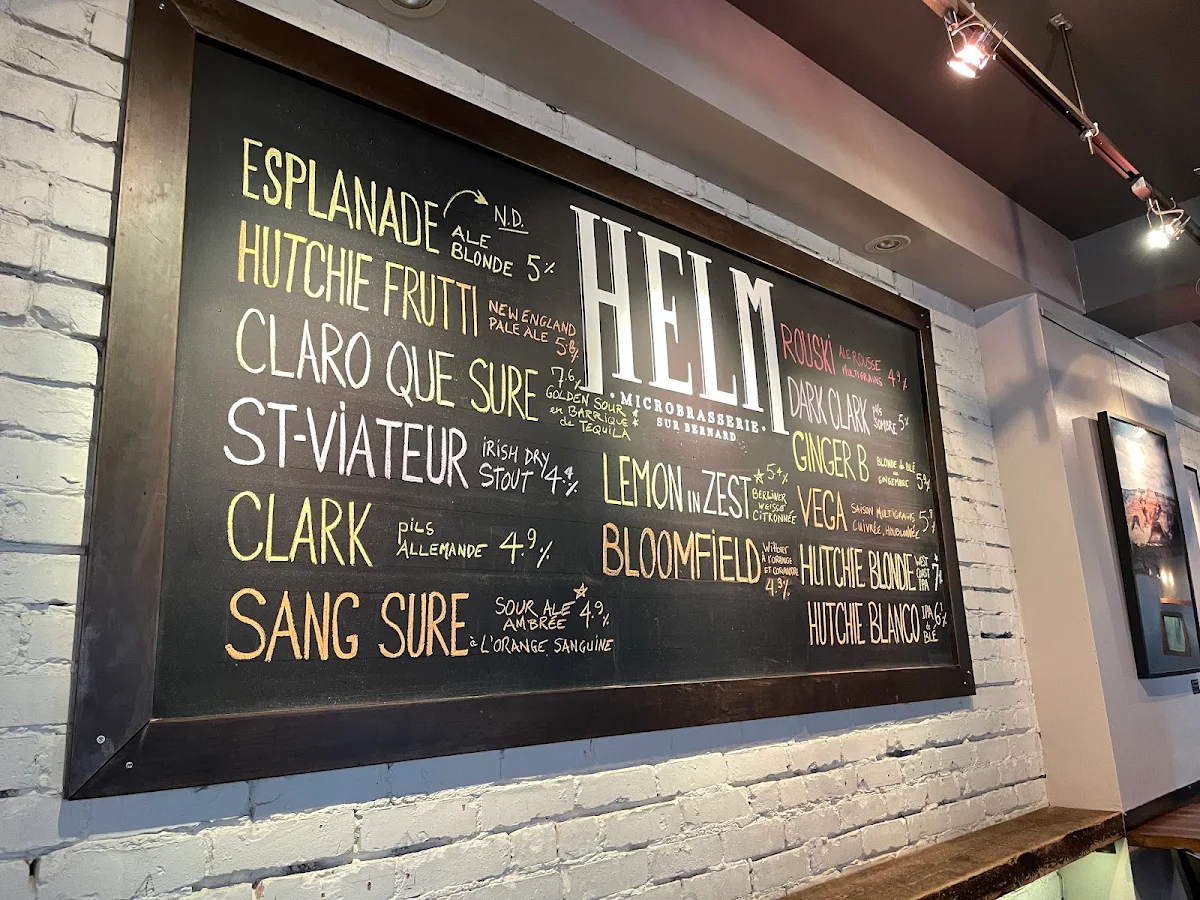 ESPLANADE
N.D.
ALE
BLONDE 5%
HUTCHIE FRUTTI
NEW ENGLAND
PALE ALE 5.8%
CLARO QUE SURE
7.6%
GOLDEN SOUR
en BARRIQUE
de TEQUILA
ST-ViATEUR
iRiSH DRY
STOUT 4.4%
CLARK
PiLS
ALLEMANDE 4.9%
SANG SURE
SOUR ALE
AMBRÉE 4.9%
à L'ORANGE SANGUINE
HELM
MICROBRASSERIE
SUR BERNARD
LEMON iN ZEST
5.4%
BERLINER
WEISSE
CiTRONNÉE
BLOOMFiELD
Witbier
À L'ORANGE
ET CORIANDRE
4.3%
ROUSKi
ALE ROUSSE
MULTIGRAINS 4.9%
DARK CLARK
PiLS
SOMBRE 5%
GINGER B
BLONDE de BLÉ
au
GINGEMBRE
VEGA
SAISON MULTIGRAINS
CUIVRÉE, HOUBLONNÉE
HUTCHIE BLONDE
WEST
COAST
IPA
HUTCHIE BLANCO
IPA
de
BLÉ